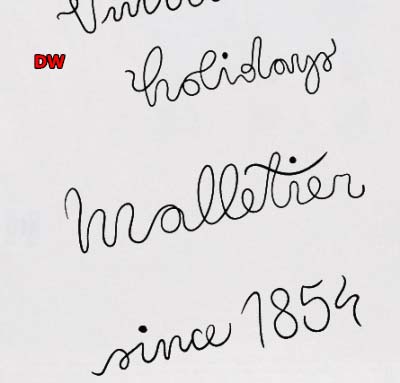 DW
holidays
Malletier
since 1854